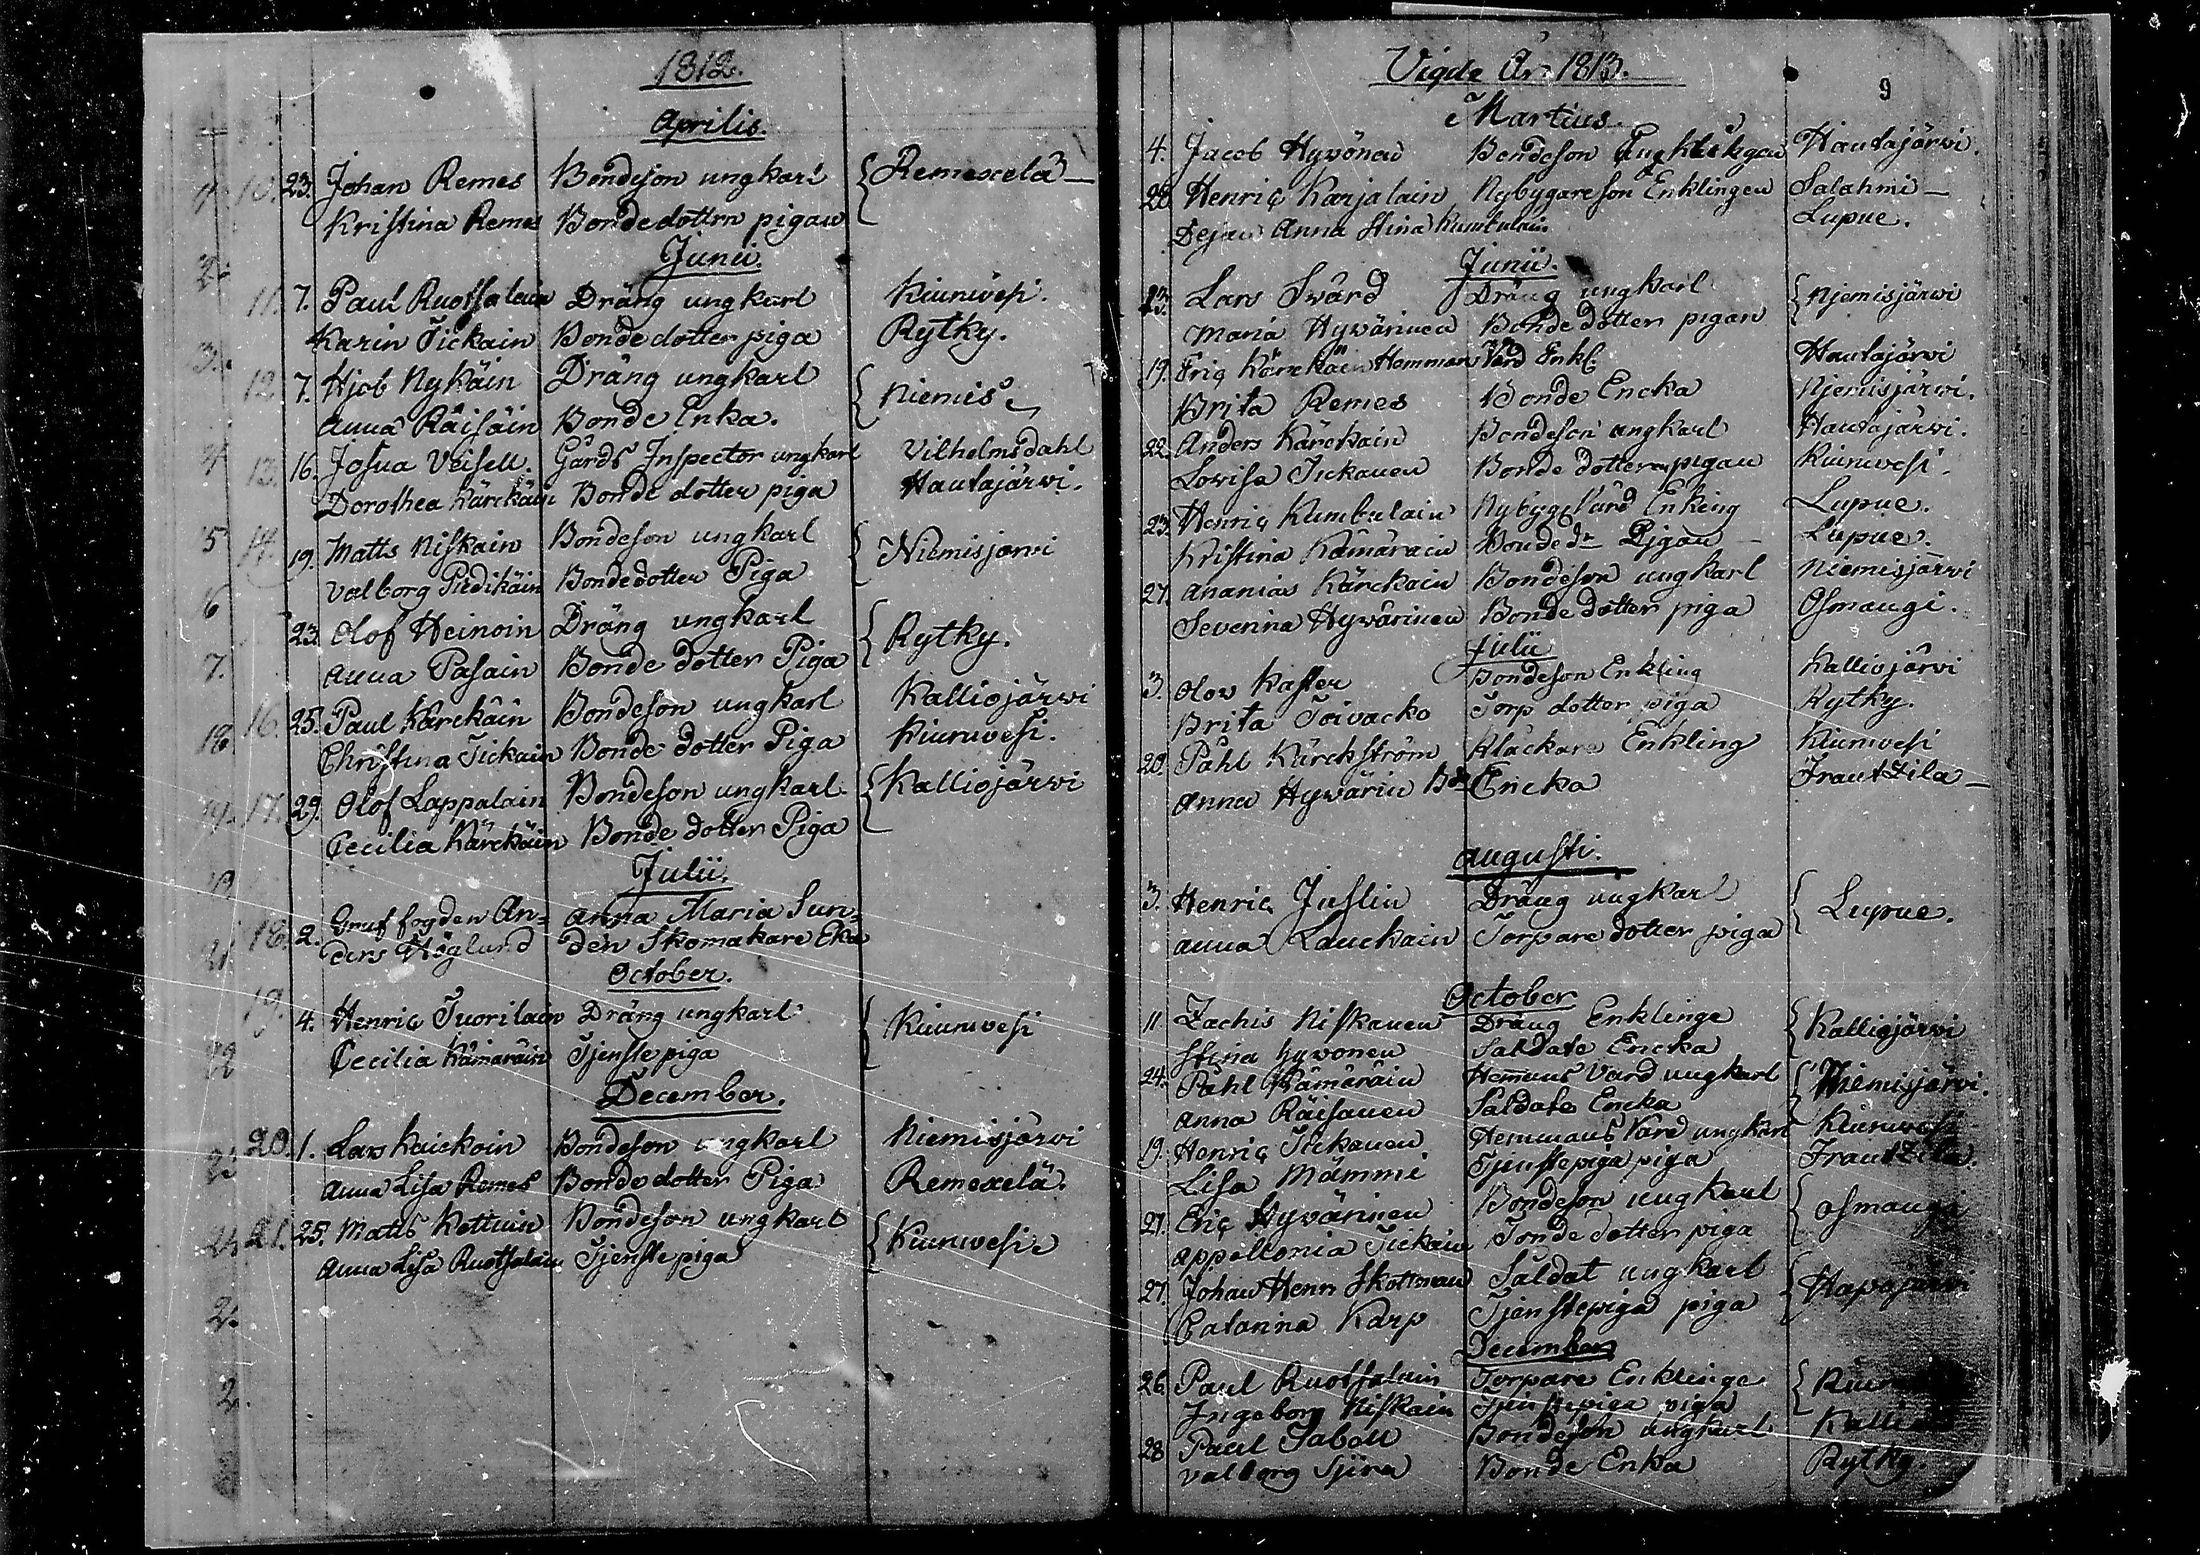 1812.
Aprilis.
10. 23. Johan Remes Bondeson ungkarl Remexelä
Kristina Remes Bondedottrn pigan
Junii.
11. 7. Paul Ruotsalain Dräng ungkarl Kiuruvesi.
Karin Tickain Bondedotter piga Rytky.
12. 7. Hjob Nykäin Dräng ungkarl Niemis
Anna Räisäin Bonde Enka.
13. 16. Josua Veisell. Gårds Inspector ungkarl Vilhelmsdahl
Dorothea Kärckäin Bonde dotter piga Hautajärwi.
14. 19. Matts Niskain Bondeson ungkarl Niemisjärwi
Valborg Piedikäin Bondedotter Piga
23. Olof Heinoin Dräng ungkarl Rytky.
Anna Pasain Bonde dotter Piga
16. 25. Paul Kärckäin Bondeson ungkarl Kalliojärwi
Christina Tickain Bonde dotter Piga Kiuruvesi.
17. 29. Olof Lappalain Bondeson ungkarl Kalliojärwi
Cecilia Kärckäin Bonde dotter Piga
Julii.
18. 2. Gruffogden An= Anna Maria Sun=
ders Höglund den Skomakare Eka
October.
19. 4. Henric Tuorilain Dräng ungkarl Kiuruvesi
Cecilia Kämäräin Tjenstepiga
December.
20. 1. Lars Kaickoin Bondeson ungkarl Niemisjärvi
Anna Lisa Remes Bondedotter Piga Remexelä.
21. 25. Matts Kettuin Bondeson ungkarl Kiuruwesi
Anna Lisa Ruotsalain Tjenstepiga
Vigde År 1813.
9
Martius
4. Jacob Hyvönen Bondeson Hautajärwi.
28. Henric Karjalain Nybygareson Enklingen Salahmi
Dejan Anna Stina Kumbulain Lupue.
Junii.
13. Lars Svärd Dräng ungkarl Njemisjärwi
Maria Hyvärinen Bonde dotter pigan
19. Eric Kärckäin Hemmans Vård Enkl. Hautajärwi
Brita Remes Bonde Encka Njemisjärwi.
22. Anders Kärckäin Bondeson ungkarl Hautajärwi.
Lovisa Tickanen Bonde dotteren pigan Kiuruvesi.
23. Henric Kumbulain Nybygg Vård Enkling Lupue.
Kristina Kämäräin Bonde dr Pigan Lupue.
27. Ananias Kärckäin Bondeson ungkarl Niemisjärvi
Severina Hyvärinen Bonde dotter piga Osmangi.
Julii
3. Olov Kaster Bondeson Enkling Kalliojärvi
Brita Toivacko Torp dotter piga Rytky.
20. Påhl Kärckström Klåckare Enkling Kiuruvesi
Anna Hyvärin Bde Encka Frautzila
Augusti.
3. Henric Juslin Dräng ungkarl Lupue.
Anna Lauckain Torpare dotter piga
October
11. Zachis Niskanen Dräng Enklinge Kalliojärvi
Stina Hyvönen Saldate Encka
24. Påhl Kämäräin Hemans Vård ungkarl Niemisjärvi.
Anna Räisanen Saldate Encka
19. Henric Tickanen Hemmans Vård ungkarl Kiuruvesi
Lisa Mämmi Tjenstepiga piga Frautzila.
27. Eric Hyvärinen Bondeson ungkarl Osmangi
Appellonia Tickain Bonde dotter piga
27. Johan Henr Skottman Saldat ungkarl Hapajärwi
Catarina Karp Tjenstepiga piga
December
26. Paul Ruotsalain Torpare Enklinge
Ingeborg Niskain Tjenstepiga piga
28 Paul Saboll Bondeson ungkarl
Valborg Sjira Bonde Enka Rytky.